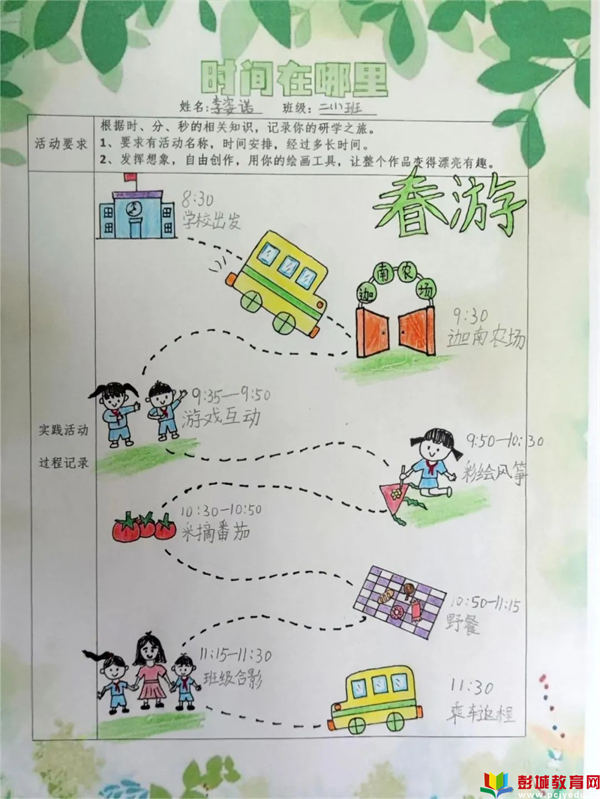 时间在哪里
姓名:李姿诺 班级:二(11)班
活动要求
根据时、分、秒的相关知识，记录你的研学之旅。
1、要求有活动名称，时间安排，经过多长时间。
2、发挥想象，自由创作，用你的绘画工具，让整个作品变得漂亮有趣。
实践活动
过程记录
春游
8:30
学校出发
迦南农场
9:30
迦南农场
9:35—9:50
游戏互动
9:50-10:30
彩绘风筝
10:30-10:50
采摘番茄
10:50-11:15
野餐
11:15-11:30
班级合影
11:30
乘车返程
彭城教育网
www.pcjyedu.com